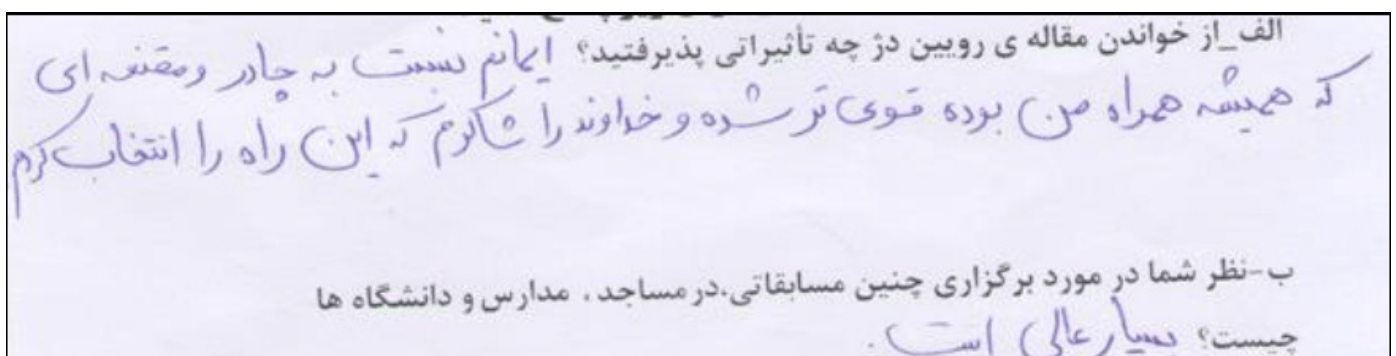 الف_از خواندن مقاله ی رویین دژ چه تأثیراتی پذیرفتید؟ ایمانم نسبت به چادر ومقنعه ای
که همیشه همراه من بوده قوی تر شده و خداوند را شاکرم که این راه را انتخاب کردم
ب-نظر شما در مورد برگزاری چنین مسابقاتی.در مساجد ، مدارس و دانشگاه ها
چیست؟ بسیار عالی است .